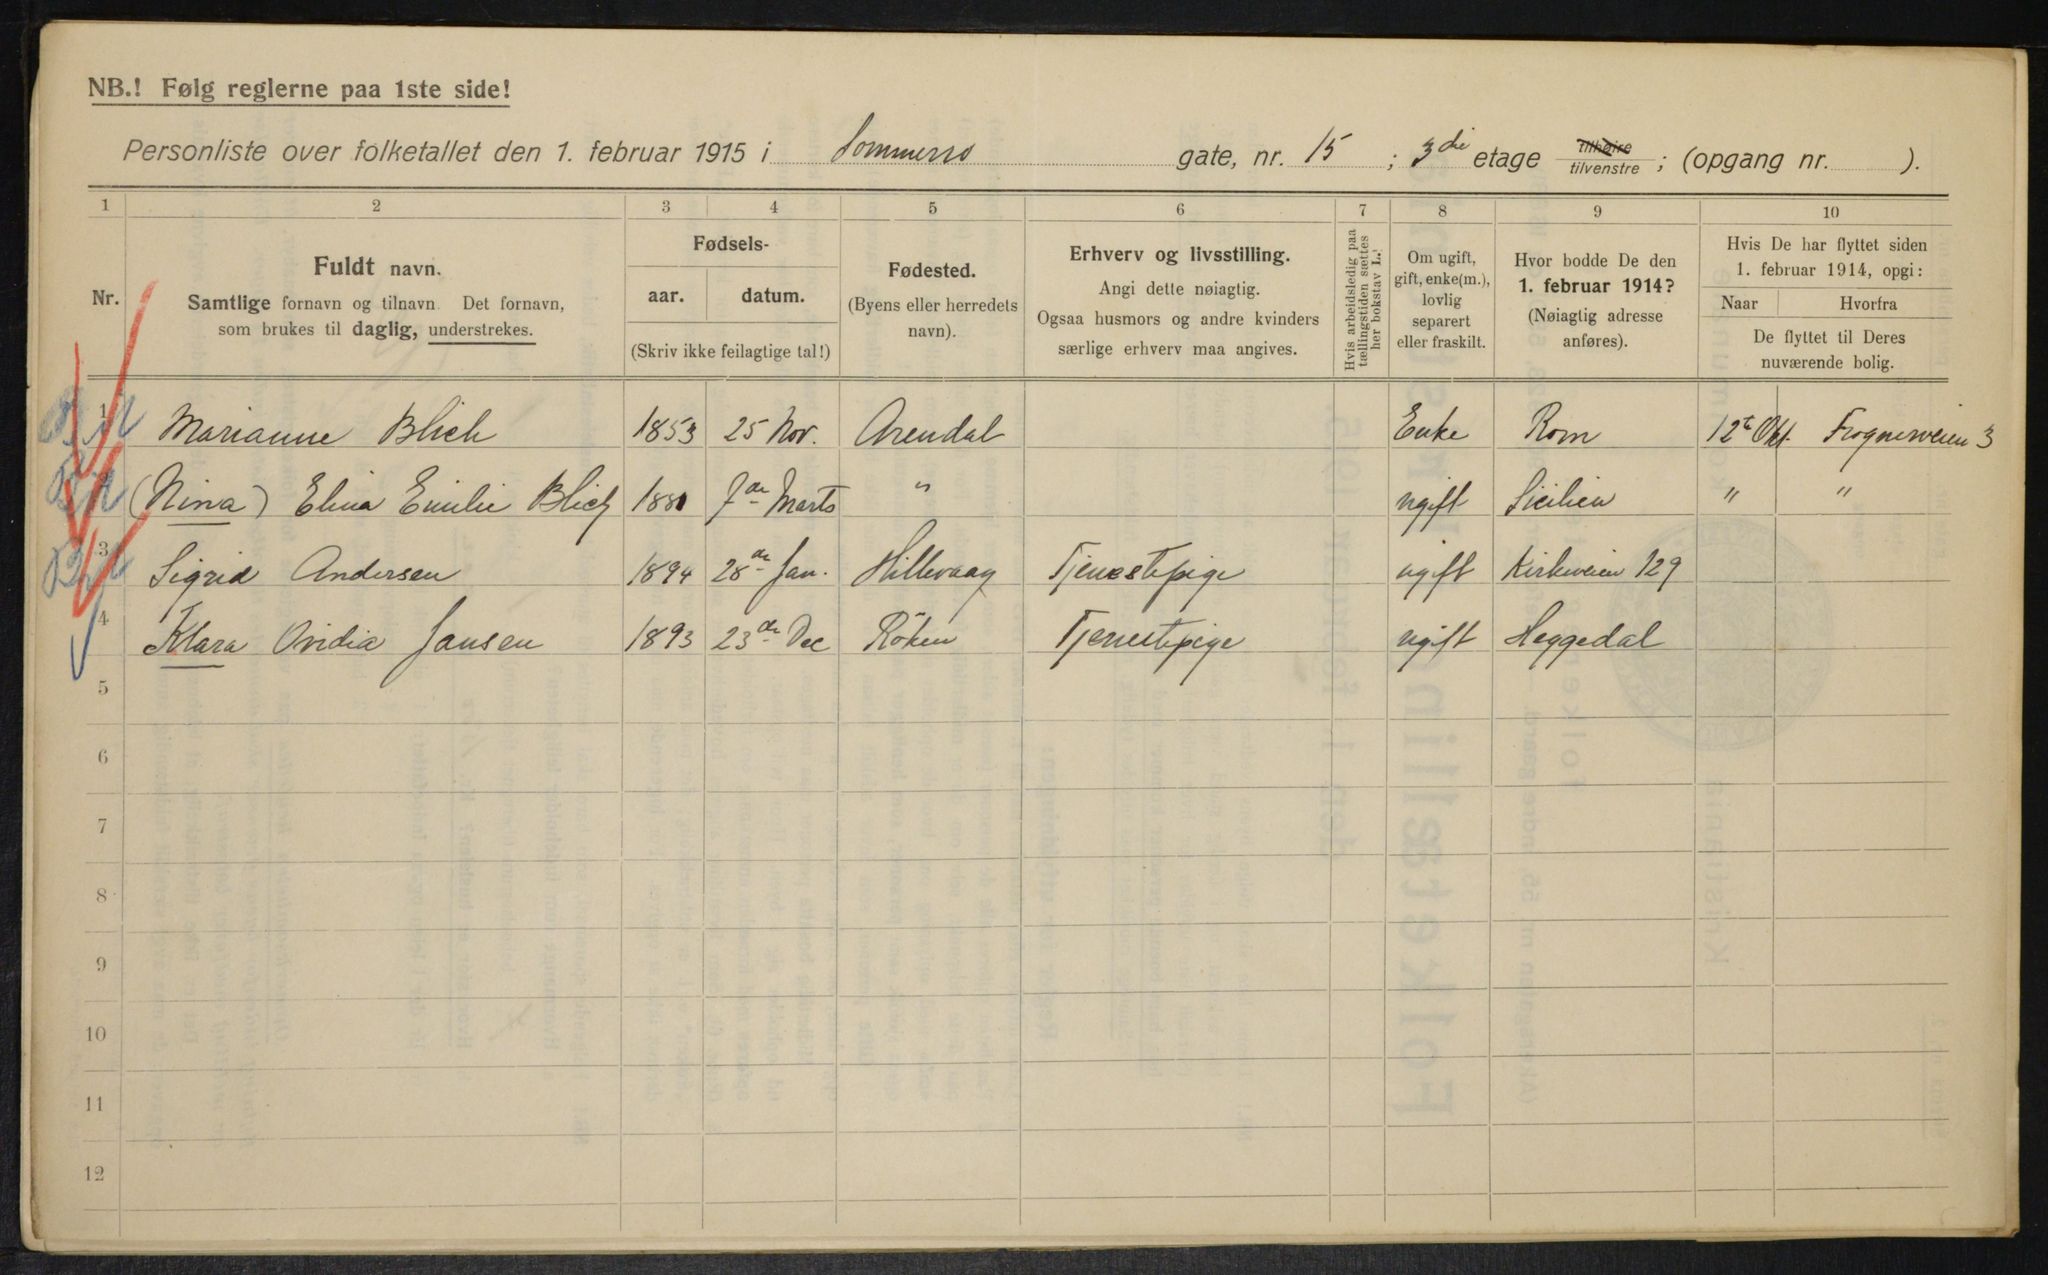 NB.! Følg reglerne paa 1ste side!
Personliste over folketallet den 1. februar 1915 i Sommerro gate, nr. 15 ; 3die etage tilhøire tilvenstre ; (opgang nr. ).
1 2 3 4 5 6 7 8 9 10
Nr.
Fuldt navn.
Samtlige fornavn og tilnavn Det fornavn,
som brukes til daglig, understrekes.
Fødsels-
aar. datum.
(Skriv ikke feilagtige tal!)
Fødested.
(Byens eller herredets
navn).
Erhverv og livsstilling.
Angi dette nøiagtig.
Ogsaa husmors og andre kvinders
særlige erhverv maa angives.
Hvis arbeidsledig paa
tællingstiden sættes
her bokstav L.!
Om ugift,
gift, enke(m.),
lovlig
separert
eller fraskilt.
Hvor bodde De den
1. februar 1914?
(Nøiagtig adresse
anføres).
Hvis De har flyttet siden
1. februar 1914, opgi:
Naar Hvorfra
De flyttet til Deres
nuværende bolig.
1 Marianne Blich 1853 25 Nov. Arendal Enke Rom 12te Okt. Frognerveien 3
(Nina) Elina Emilie Blich 1881 7de Marts " ugift Sicilien " "
3 Sigrid Andersen 1894 28de Jan. Hillevaag Tjenestepige ugift Kirkeveien 129
4 Klara Ovidia Jansen 1893 23de Dec Röken Tjenestepige ugift Heggedal
5
6
7
8
9
10
11
12